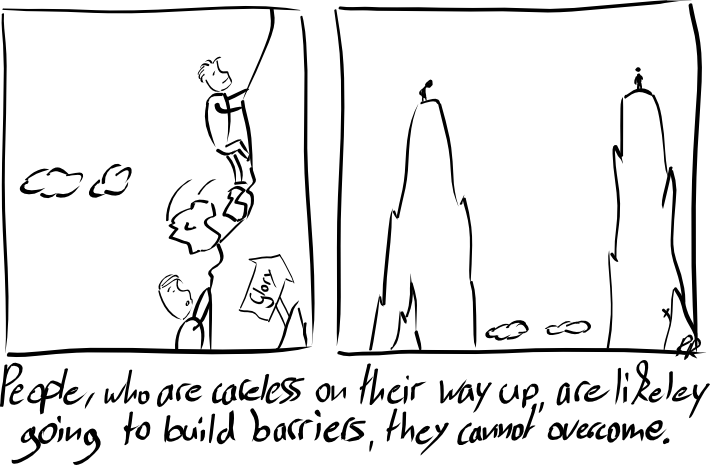 Glory
PR
People, who are careless on their way up, are likeley
going to build barriers, they cannot overcome.